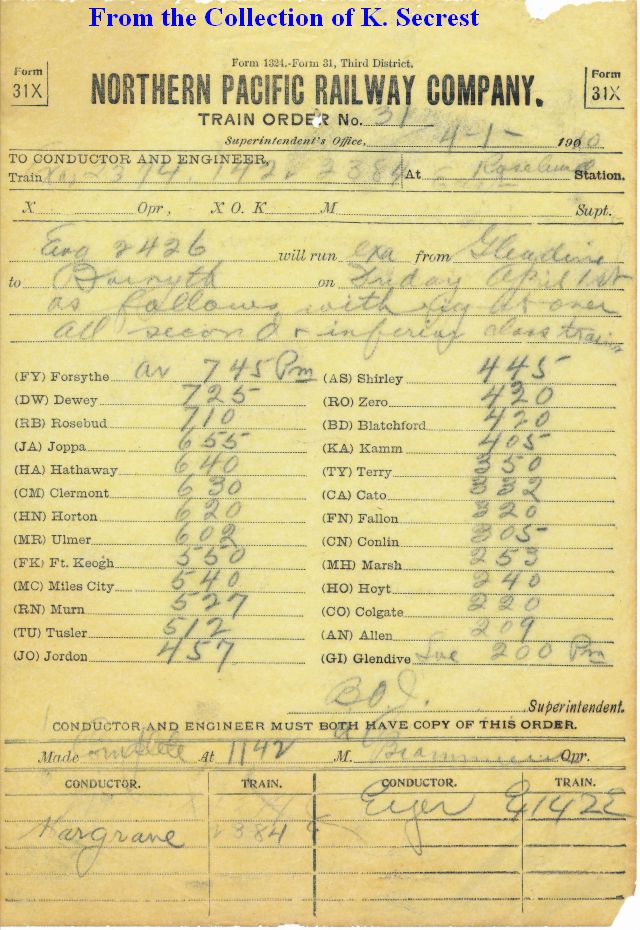 From the Collection of K. Secrest
Form 1324.-Form 31, Third District.
Form 31X
NORTHERN PACIFIC RAILWAY COMPANY.
Form 31X
TRAIN ORDER No. 31
Superintendent's Office, 4-1- 1910
TO CONDUCTOR AND ENGINEER,
Train 2374 1422 2384 At Rosebud Station.
X Opr, X O. K M Supt.
Eng 2426 will run exa from Glendive
to Forsyth on Friday April 1st
as follows with right over
all second & inferior class trains
(FY) Forsythe ar 745 Pm
(DW) Dewey 725
(RB) Rosebud 710
(JA) Joppa 655
(HA) Hathaway 640
(CM) Clermont 630
(HN) Horton 620
(MR) Ulmer 602
(FK) Ft. Keogh 550
(MC) Miles City 540
(RN) Murn 527
(TU) Tusler 512
(JO) Jordon 457
(AS) Shirley 445
(RO) Zero 420
(BD) Blatchford 420
(KA) Kamm 405
(TY) Terry 350
(CA) Cato 332
(FN) Fallon 320
(CN) Conlin 305
(MH) Marsh 253
(HO) Hoyt 240
(CO) Colgate 220
(AN) Allen 209
(GI) Glendive Lve 200 Pm
BOJ. Superintendent.
CONDUCTOR AND ENGINEER MUST BOTH HAVE COPY OF THIS ORDER.
Made Complete At 1142 M. Opr.
CONDUCTOR. TRAIN. CONDUCTOR. TRAIN.
Eyer 1422
Hargrave 2384